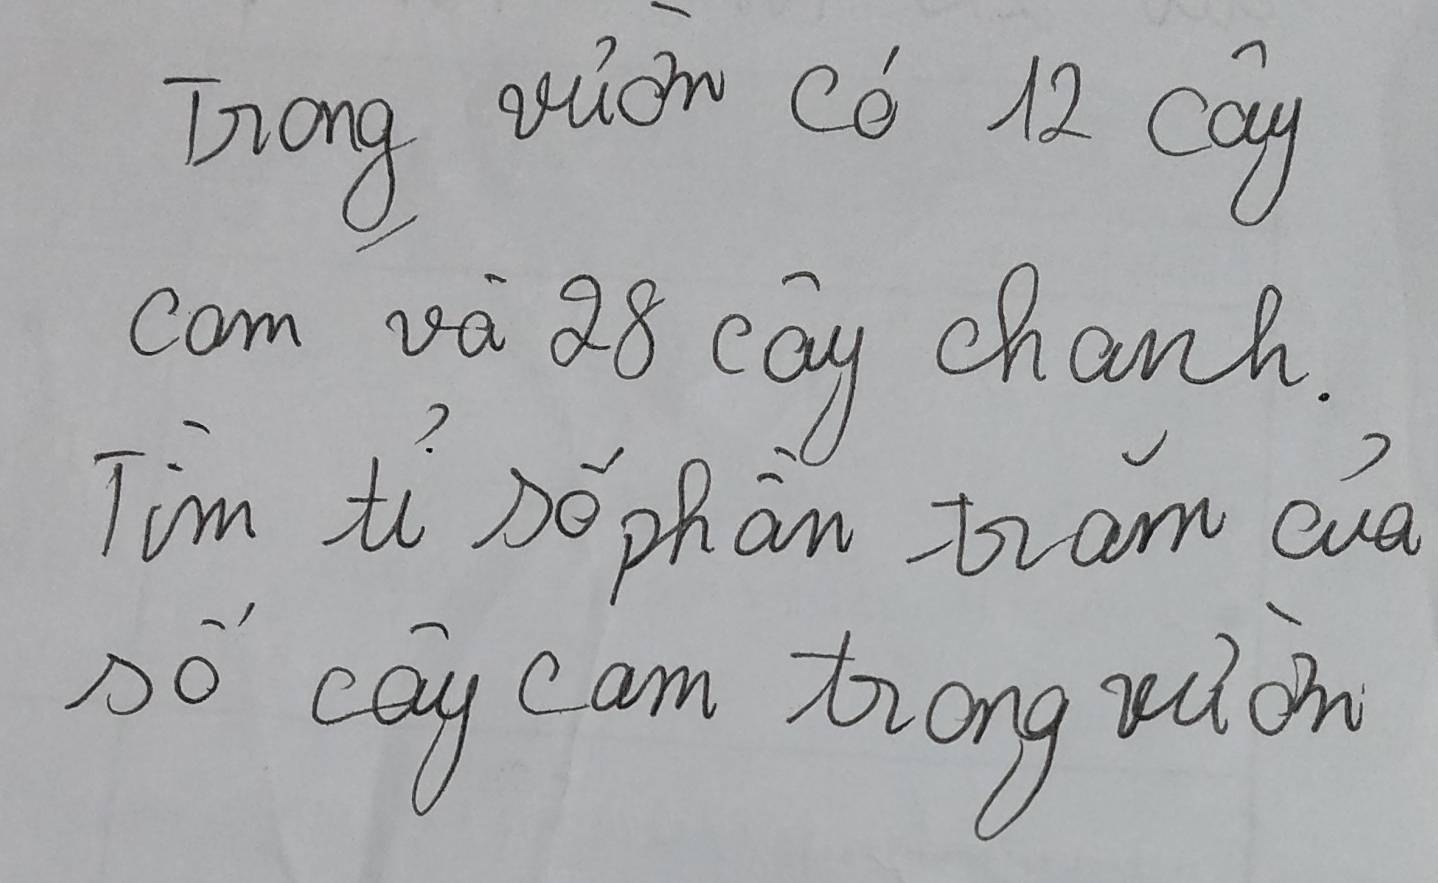 Trong vườn có 12 cây
cam và 28 cây chanh.
Tìm tỉ số phần trăm của
số cây cam trong vườn